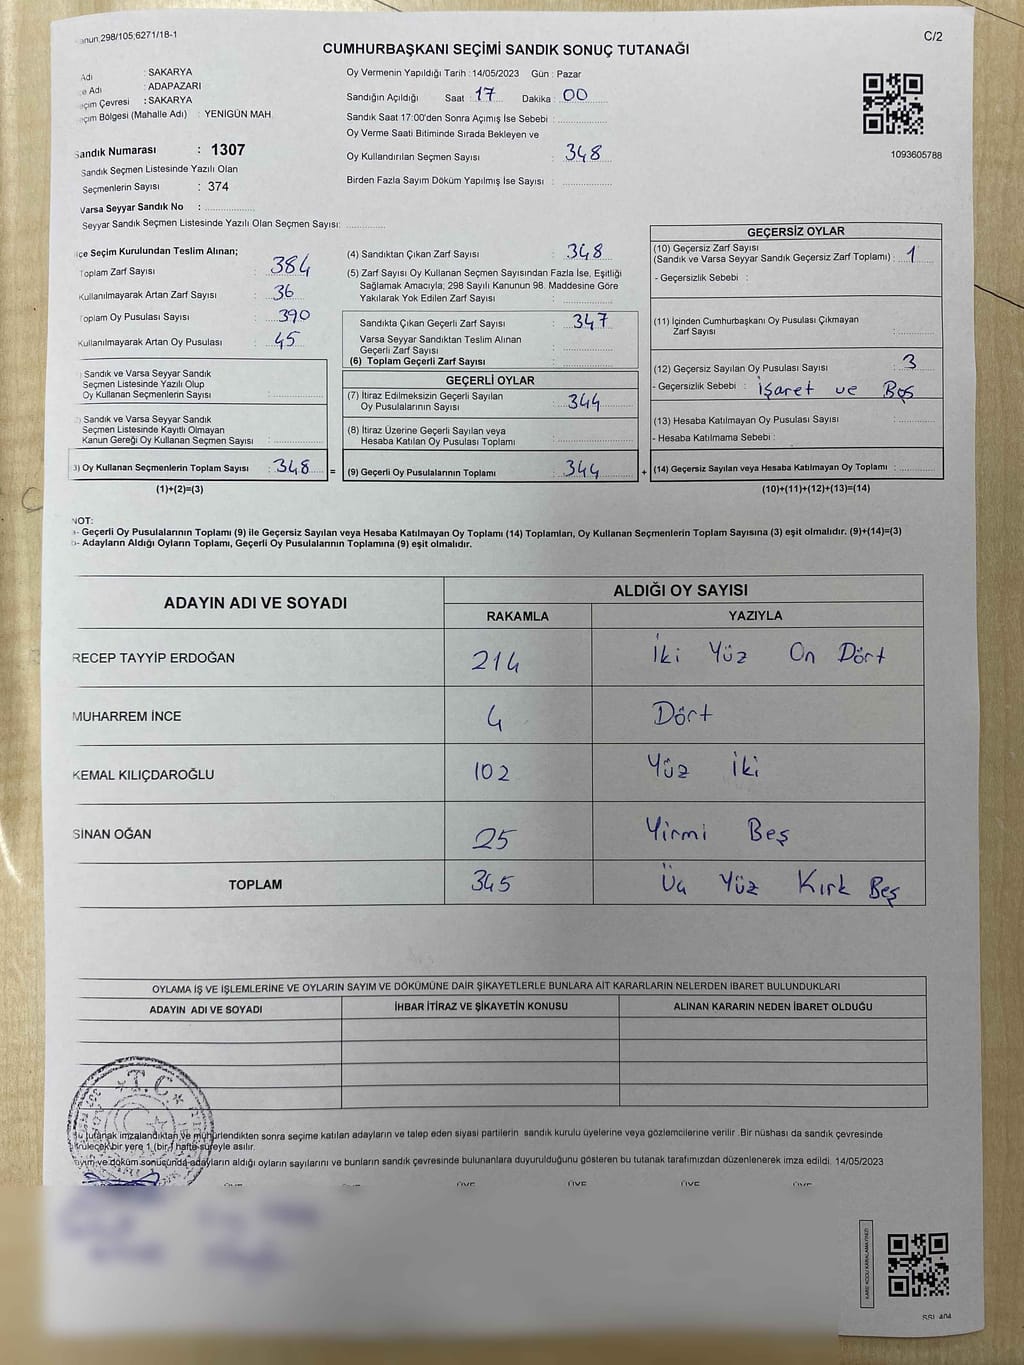 anun,298/105,6271/18-1
C/2
CUMHURBAŞKANI SEÇİMİ SANDIK SONUÇ TUTANAĞI
Adı : SAKARYA
Adı : ADAPAZARI
eçim Çevresi : SAKARYA
eçim Bölgesi (Mahalle Adı) : YENİGÜN MAH
Sandık Numarası : 1307
Sandık Seçmen Listesinde Yazılı Olan
Seçmenlerin Sayısı : 374
Varsa Seyyar Sandık No :
Seyyar Sandık Seçmen Listesinde Yazılı Olan Seçmen Sayısı:
Oy Vermenin Yapıldığı Tarih : 14/05/2023 Gün : Pazar
Sandığın Açıldığı Saat 17 Dakika 00
Sandık Saat 17:00'den Sonra Açımış İse Sebebi :
Oy Verme Saati Bitiminde Sırada Bekleyen ve
Oy Kullandırılan Seçmen Sayısı : 348
Birden Fazla Sayım Döküm Yapılmış İse Sayısı :
1093605788
lçe Seçim Kurulundan Teslim Alınan;
Toplam Zarf Sayısı : 384
Kullanılmayarak Artan Zarf Sayısı : 36
Toplam Oy Pusulası Sayısı : 390
Kullanılmayarak Artan Oy Pusulası : 45
) Sandık ve Varsa Seyyar Sandık
Seçmen Listesinde Yazılı Olup
Oy Kullanan Seçmenlerin Sayısı :
) Sandık ve Varsa Seyyar Sandık
Seçmen Listesinde Kayıtlı Olmayan
Kanun Gereği Oy Kullanan Seçmen Sayısı :
3) Oy Kullanan Seçmenlerin Toplam Sayısı : 348 =
(1)+(2)=(3)
(4) Sandıktan Çıkan Zarf Sayısı : 348
(5) Zarf Sayısı Oy Kullanan Seçmen Sayısından Fazla İse, Eşitliği
Sağlamak Amacıyla; 298 Sayılı Kanunun 98. Maddesine Göre
Yakılarak Yok Edilen Zarf Sayısı :
Sandıkta Çıkan Geçerli Zarf Sayısı : 347
Varsa Seyyar Sandıktan Teslim Alınan
Geçerli Zarf Sayısı :
(6) Toplam Geçerli Zarf Sayısı :
GEÇERLİ OYLAR
(7) İtiraz Edilmeksizin Geçerli Sayılan
Oy Pusulalarının Sayısı : 344
(8) İtiraz Üzerine Geçerli Sayılan veya
Hesaba Katılan Oy Pusulası Toplamı :
(9) Geçerli Oy Pusulalarının Toplamı : 344 +
GEÇERSİZ OYLAR
(10) Geçersiz Zarf Sayısı
(Sandık ve Varsa Seyyar Sandık Geçersiz Zarf Toplamı) : 1
- Geçersizlik Sebebi :
(11) İçinden Cumhurbaşkanı Oy Pusulası Çıkmayan
Zarf Sayısı :
(12) Geçersiz Sayılan Oy Pusulası Sayısı : 3
- Geçersizlik Sebebi : İşaret ve Boş
(13) Hesaba Katılmayan Oy Pusulası Sayısı :
- Hesaba Katılmama Sebebi :
(14) Geçersiz Sayılan veya Hesaba Katılmayan Oy Toplamı :
(10)+(11)+(12)+(13)=(14)
NOT:
a- Geçerli Oy Pusulalarının Toplamı (9) ile Geçersiz Sayılan veya Hesaba Katılmayan Oy Toplamı (14) Toplamları, Oy Kullanan Seçmenlerin Toplam Sayısına (3) eşit olmalıdır. (9)+(14)=(3)
b- Adayların Aldığı Oyların Toplamı, Geçerli Oy Pusulalarının Toplamına (9) eşit olmalıdır.
ADAYIN ADI VE SOYADI ALDIĞI OY SAYISI
RAKAMLA YAZIYLA
RECEP TAYYİP ERDOĞAN 214 İki Yüz On Dört
MUHARREM İNCE 4 Dört
KEMAL KILIÇDAROĞLU 102 Yüz İki
SİNAN OĞAN 25 Yirmi Beş
TOPLAM 345 Üç Yüz Kırk Beş
OYLAMA İŞ VE İŞLEMLERİNE VE OYLARIN SAYIM VE DÖKÜMÜNE DAİR ŞİKAYETLERLE BUNLARA AİT KARARLARIN NELERDEN İBARET BULUNDUKLARI
ADAYIN ADI VE SOYADI İHBAR İTİRAZ VE ŞİKAYETİN KONUSU ALINAN KARARIN NEDEN İBARET OLDUĞU
T.C
u tutanak imzalandıktan ve mühürlendikten sonra seçime katılan adayların ve talep eden siyasi partilerin sandık kurulu üyelerine veya gözlemcilerine verilir .Bir nüshası da sandık çevresinde
rülecek bir yere 1 (bir) hafta süreyle asılır.
ayım ve döküm sonucunda adayların aldığı oyların sayılarını ve bunların sandık çevresinde bulunanlara duyurulduğunu gösteren bu tutanak tarafımızdan düzenlenerek imza edildi. 14/05/2023
ÜYE ÜYE ÜYE ÜYE ÜYE